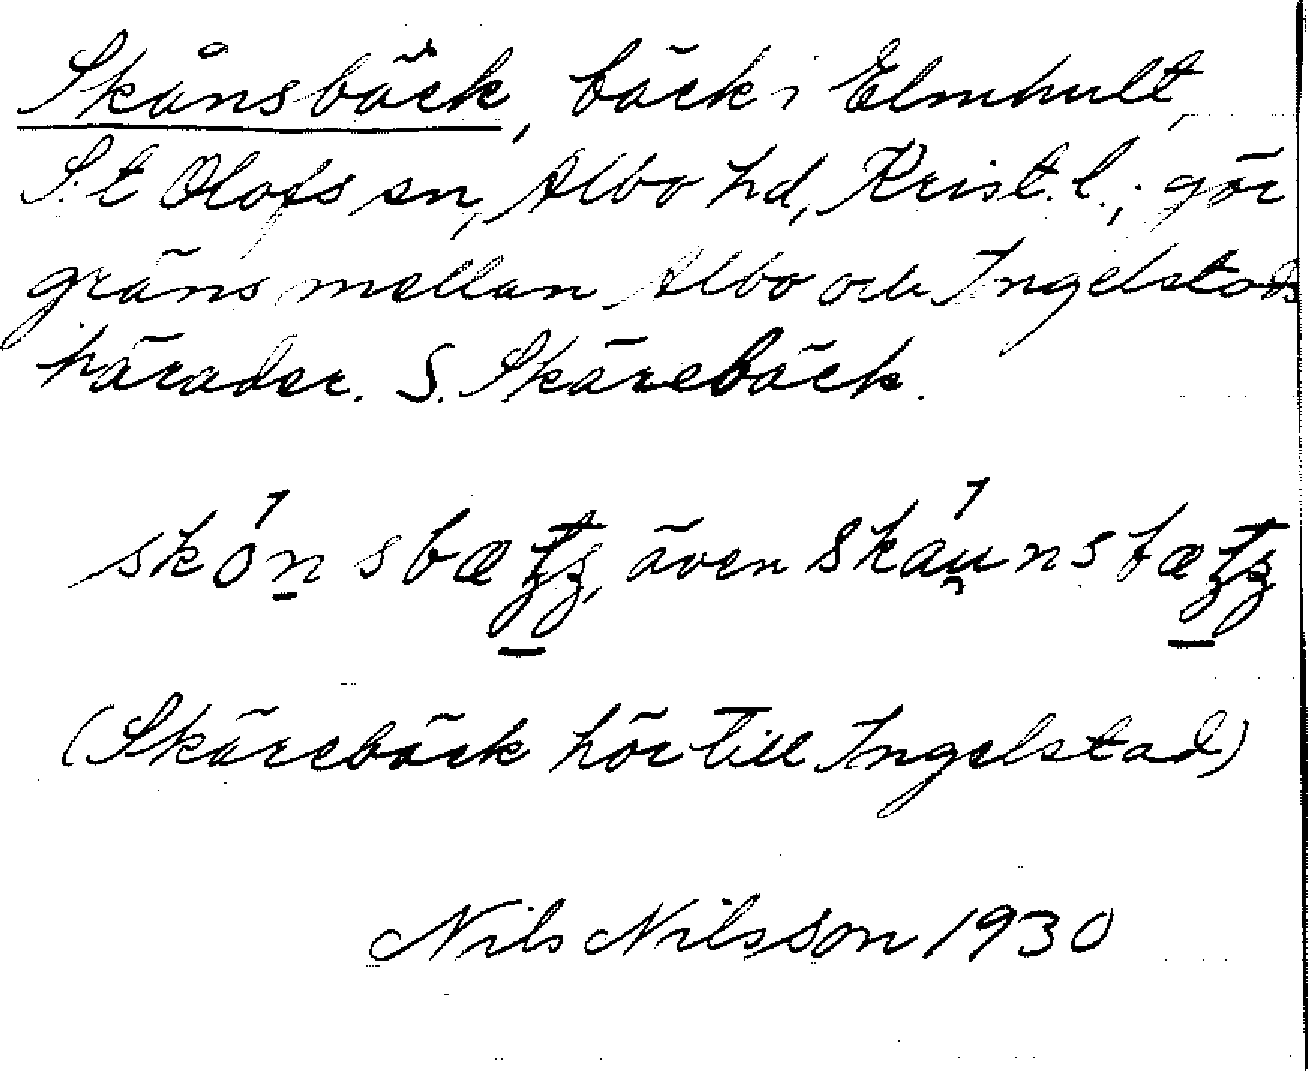 Skånsbäck, bäck i Elmhult,
S:t Olofs sn, Albo hd, Krist. l.; gör
gräns mellan Albo och Ingelstads
härader. S. Skärebäck.
även
(Skärebäck hör till Ingelstad)
Nils Nilsson 1930